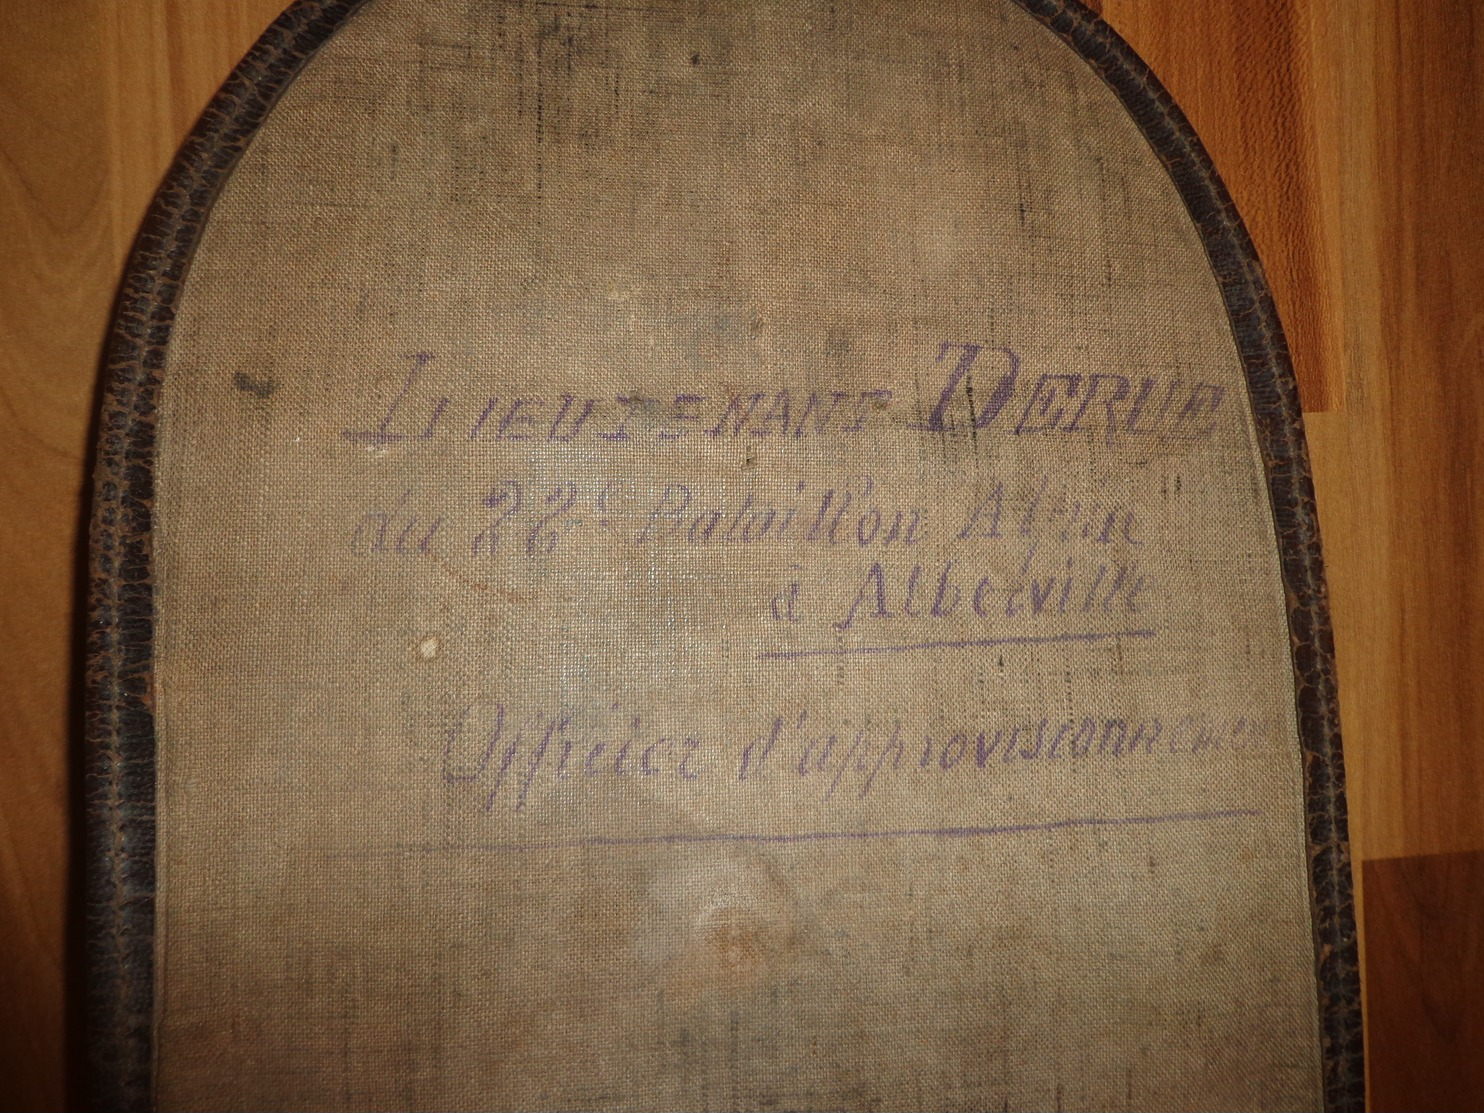 LIEUTENANT DERUE
du 22e Bataillon Alpin
à Albertville
Officier d'approvisionnement